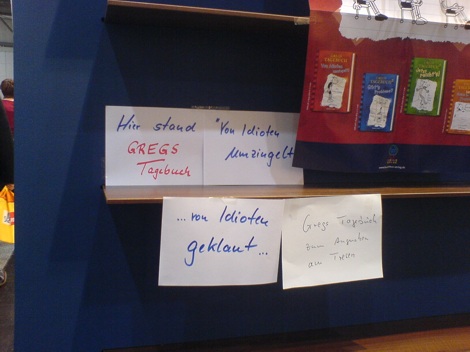 Hier stand
GREGS
Tagebuch
"Von Idioten
Umzingelt
...von Idioten
geklaut...
Gregs Tagebuch
zum Angucken
am Tresen